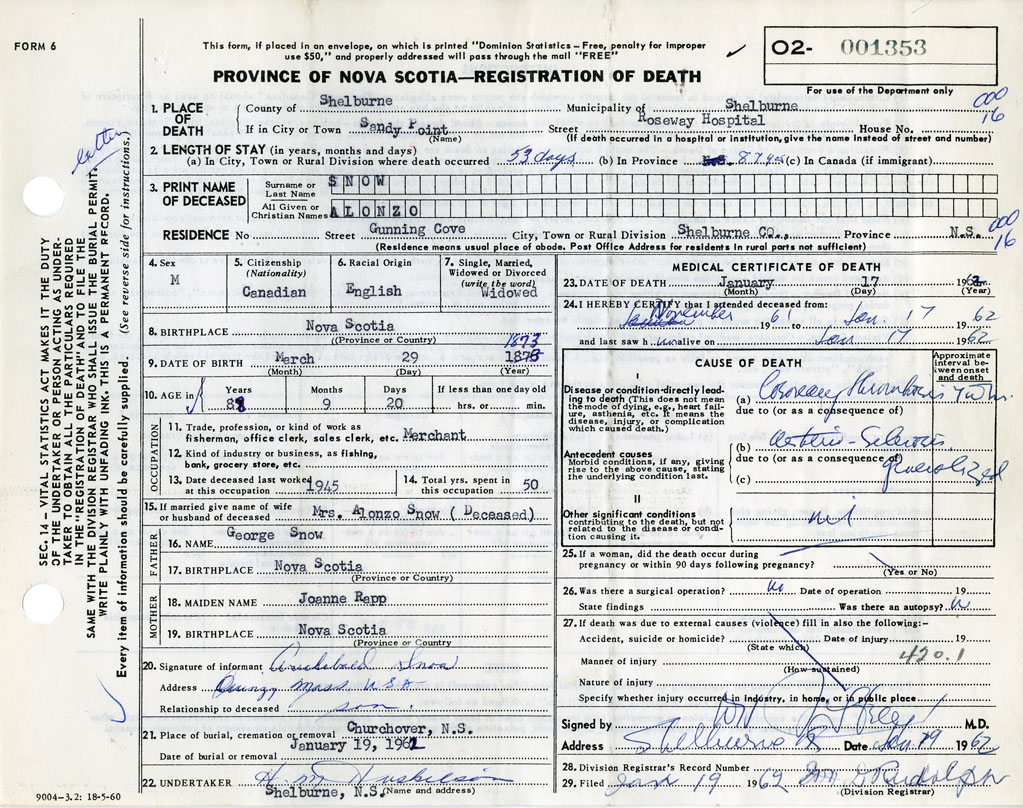 FORM 6
This form, if placed in an envelope, on which is printed "Dominion Statistics – Free, penalty for improper
use $50," and properly addressed will pass through the mail "FREE"
O2- 001353
For use of the Department only
PROVINCE OF NOVA SCOTIA—REGISTRATION OF DEATH
000
16
1. PLACE OF DEATH
County of Shelburne Municipality of Shelburne
If in City or Town Sandy Point Street Roseway Hospital House No.
(Name) (If death occurred in a hospital or institution, give the name instead of street and number)
2. LENGTH OF STAY (in years, months and days)
(a) In City, Town or Rural Division where death occurred 53 days (b) In Province 87 yrs (c) In Canada (if immigrant)
3. PRINT NAME OF DECEASED
Surname or Last Name SNOW
All Given or Christian Names ALONZO
RESIDENCE No Street Gunning Cove City, Town or Rural Division Shelburne CO., Province N.S.
000
16
(Residence means usual place of abode. Post Office Address for residents in rural parts not sufficient)
4. Sex M
5. Citizenship (Nationality) Canadian
6. Racial Origin English
7. Single, Married, Widowed or Divorced (write the word) Widowed
8. BIRTHPLACE Nova Scotia
(Province or Country)
1873
9. DATE OF BIRTH March 29 187
(Month) (Day) (Year)
10. AGE in Years 88 Months 9 Days 20 If less than one day old hrs. or min.
OCCUPATION
11. Trade, profession, or kind of work as fisherman, office clerk, sales clerk, etc. Merchant
12. Kind of industry or business, as fishing, bank, grocery store, etc.
13. Date deceased last worked at this occupation 1945
14. Total yrs. spent in this occupation 50
15. If married give name of wife or husband of deceased Mrs. Alonzo Snow ( Deceased)
FATHER
16. NAME George Snow
17. BIRTHPLACE Nova Scotia
(Province or Country)
MOTHER
18. MAIDEN NAME Joanne Rapp
19. BIRTHPLACE Nova Scotia
(Province or Country
20. Signature of informant Archibald Snow
Address Quincy Mass USA
Relationship to deceased son.
21. Place of burial, cremation or removal Churchover, N.S.
Date of burial or removal January 19, 1962
22. UNDERTAKER H. M. Huskilson
Shelburne, N.S. (Name and address)
9004-3.2: 18-5-60
MEDICAL CERTIFICATE OF DEATH
23. DATE OF DEATH January 17 1962
(Month) (Day) (Year)
24. I HEREBY CERTIFY that I attended deceased from:
November 1961 to Jan 17 1962
and last saw h im alive on Jan 17 1962
CAUSE OF DEATH
Approximate interval between onset and death
I
Disease or condition directly leading to death (This does not mean the mode of dying, e.g., heart failure, asthenia, etc. It means the disease, injury, or complication which caused death.)
(a) Coronary Thrombosis
due to (or as a consequence of)
Antecedent causes
Morbid conditions, if any, giving rise to the above cause, stating the underlying condition last.
(b) Arterio-Sclerosis
due to (or as a consequence of)
generalized
(c)
II
Other significant conditions contributing to the death, but not related to the disease or condition causing it.
nil
25. If a woman, did the death occur during pregnancy or within 90 days following pregnancy?
(Yes or No)
26. Was there a surgical operation? no Date of operation 19
State findings Was there an autopsy?
27. If death was due to external causes (violence) fill in also the following:-
Accident, suicide or homicide? Date of injury 19
(State which)
Manner of injury 420.1
(How sustained)
Nature of injury
Specify whether injury occurred in industry, in home, or in public place
Signed by M.D.
Address Shelburne Date Jan 19 1962
28. Division Registrar's Record Number
29. Filed Jan 19 1962 Rudolph
(Division Registrar)
SEC. 14 – VITAL STATISTICS ACT MAKES IT THE DUTY
OF THE UNDERTAKER OR PERSON ACTING AS UNDER-
TAKER TO OBTAIN ALL THE PARTICULARS REQUIRED
IN THE "REGISTRATION OF DEATH" AND TO FILE THE
SAME WITH THE DIVISION REGISTRAR WHO SHALL ISSUE THE BURIAL PERMIT.
WRITE PLAINLY WITH UNFADING INK. THIS IS A PERMANENT RECORD.
Every item of information should be carefully supplied. (See reverse side for instructions.)
letter